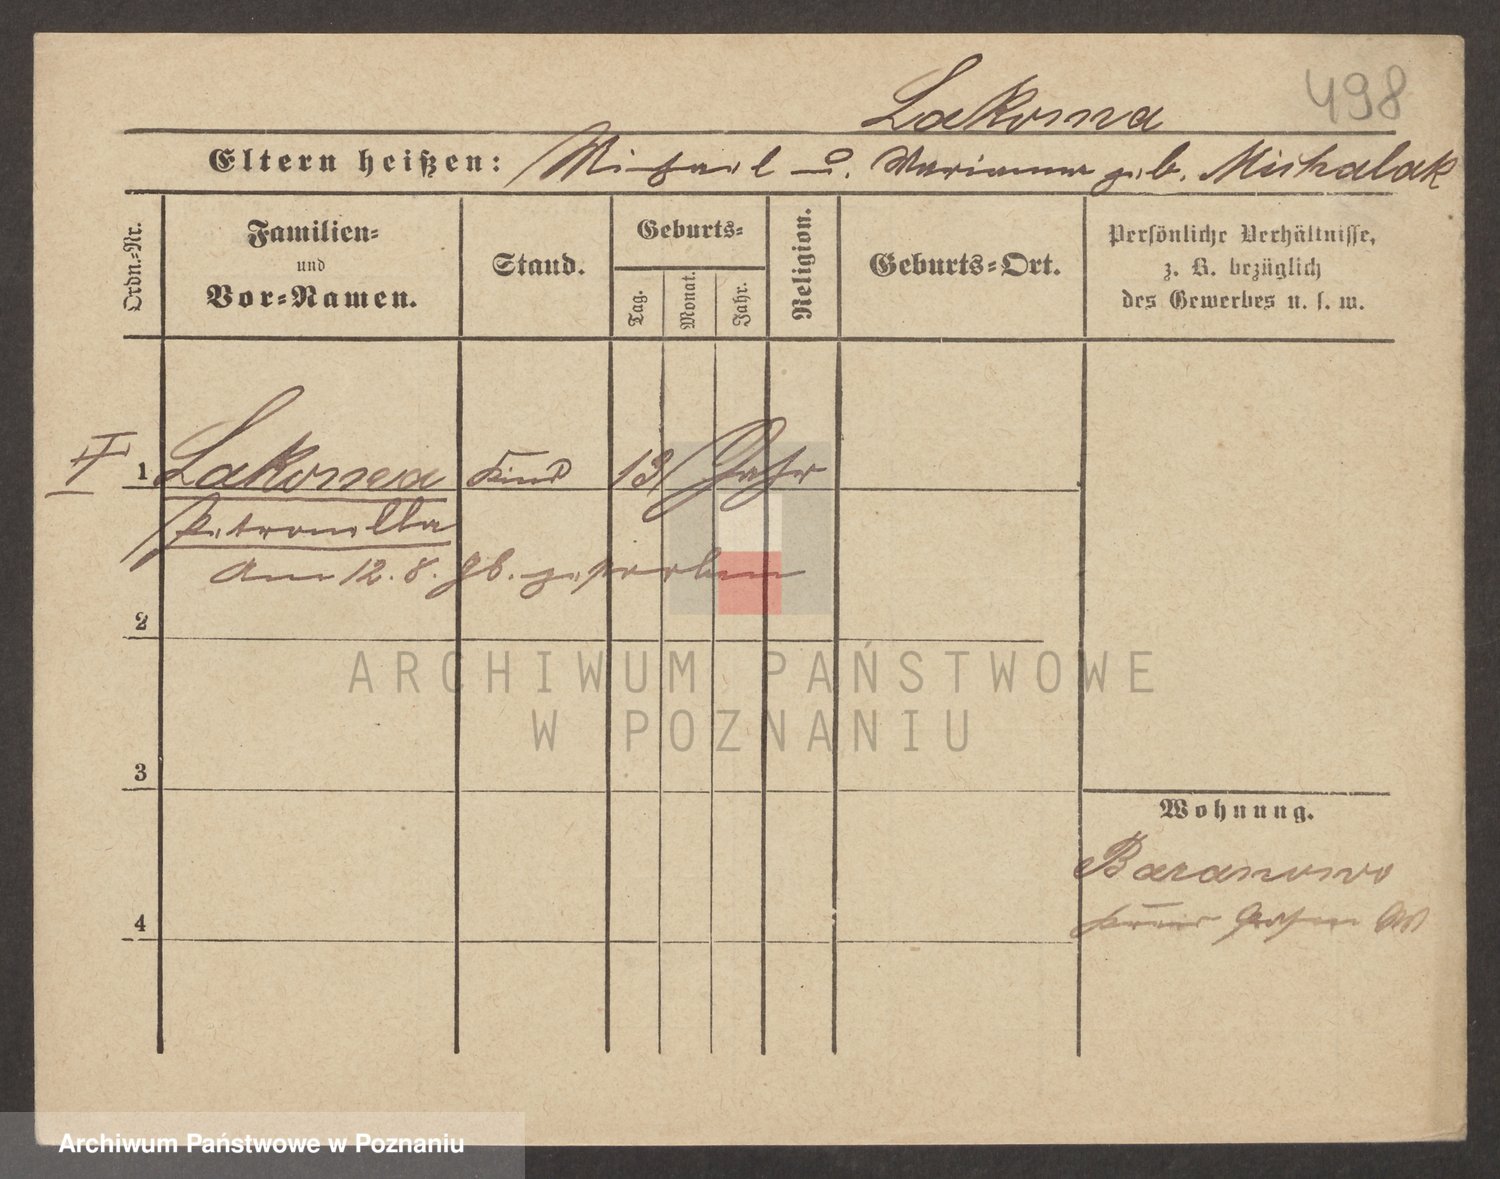 498
Lakoma
Eltern heißen: Michael u. Marianna geb. Michalak
Ordn.-Nr.
Familien-
und
Vor-Namen.
Stand.
Geburts-
Tag.
Monat.
Jahr.
Religion.
Geburts-Ort.
Persönliche Verhältnisse,
z. B. bezüglich
des Gewerbes u. s. w.
II
1 Lakoma Kind 13 Jahr
Petronilla
am 12. 8. 96. gestorben
2
ARCHIWUM PAŃSTWOWE
W POZNANIU
3
Wohnung.
Baranowo
Kreis Posen West
4
Archiwum Państwowe w Poznaniu